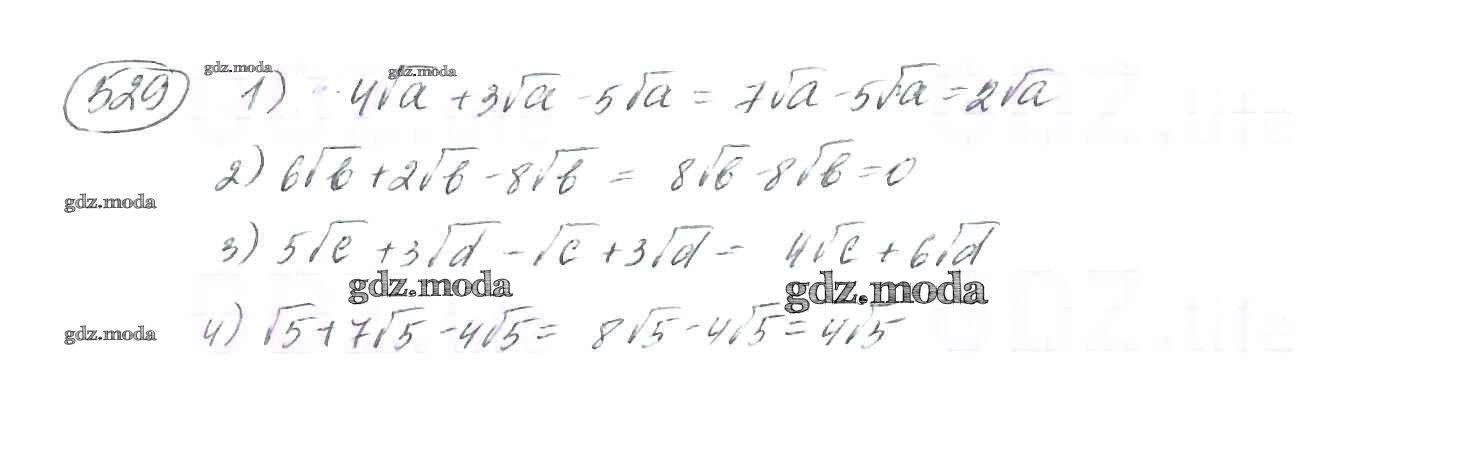 529 gdz.moda 1) gdz.moda 4√a + 3√a - 5√a = 7√a - 5√a = 2√a
gdz.moda 2) 6√b + 2√b - 8√b = 8√b - 8√b = 0
3) 5√c + 3√d - √c + 3√d = 4√c + 6√d
gdz.moda gdz.moda
gdz.moda 4) √5 + 7√5 - 4√5 = 8√5 - 4√5 = 4√5